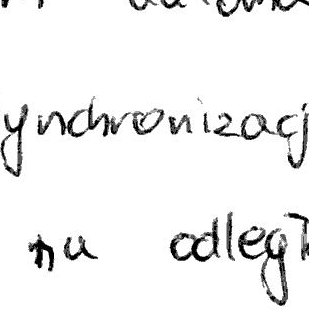 ynchronizacj
nu odleg